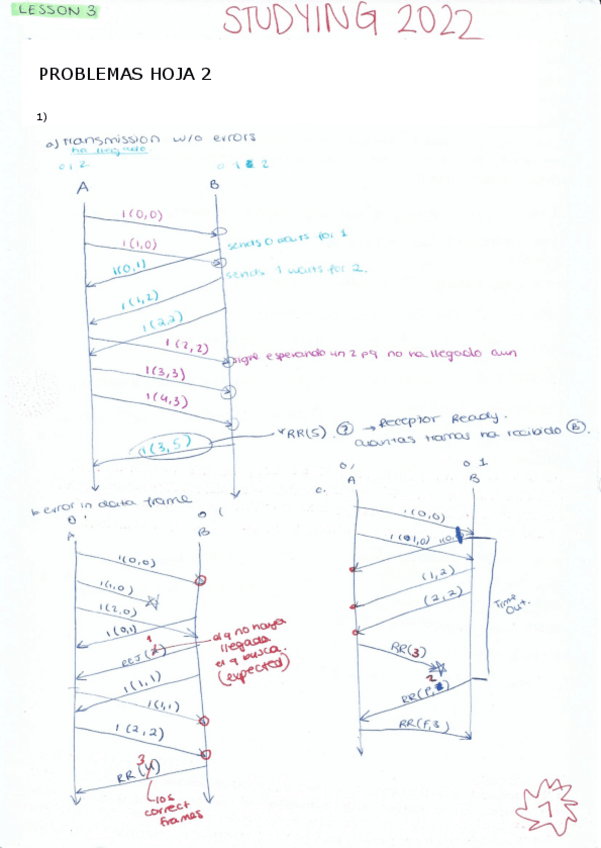 LESSON 3
STUDYING 2022
PROBLEMAS HOJA 2
1)
a) transmission w/o errors
no llegado
0 1 2
0 1 2
A
B
i(0,0)
i(1,0)
sends 0 waits for 1
i(0,1)
sends 1 waits for 2.
i(1,2)
i(2,2)
i(2,2)
sigue esperando un 2 pq no ha llegado aun
i(3,3)
i(4,3)
i(3,5)
RR(5). ? → Receptor Ready.
cuantas tramas ha recibido B.
b error in data frame
0 1
0 1
A
B
i(0,0)
i(1,0)
i(2,0)
i(0,1)
1
REJ
al q no haya
llegado
el q busca.
(expected)
i(1,1)
i(1,1)
i(2,2)
3
RR(4)
los
correct
frames
c.
0,
0 1
A
B
i(0,0)
(1,2)
(2,2)
Time
Out.
RR(3)
2
RR(P,
RR(F,3)
1